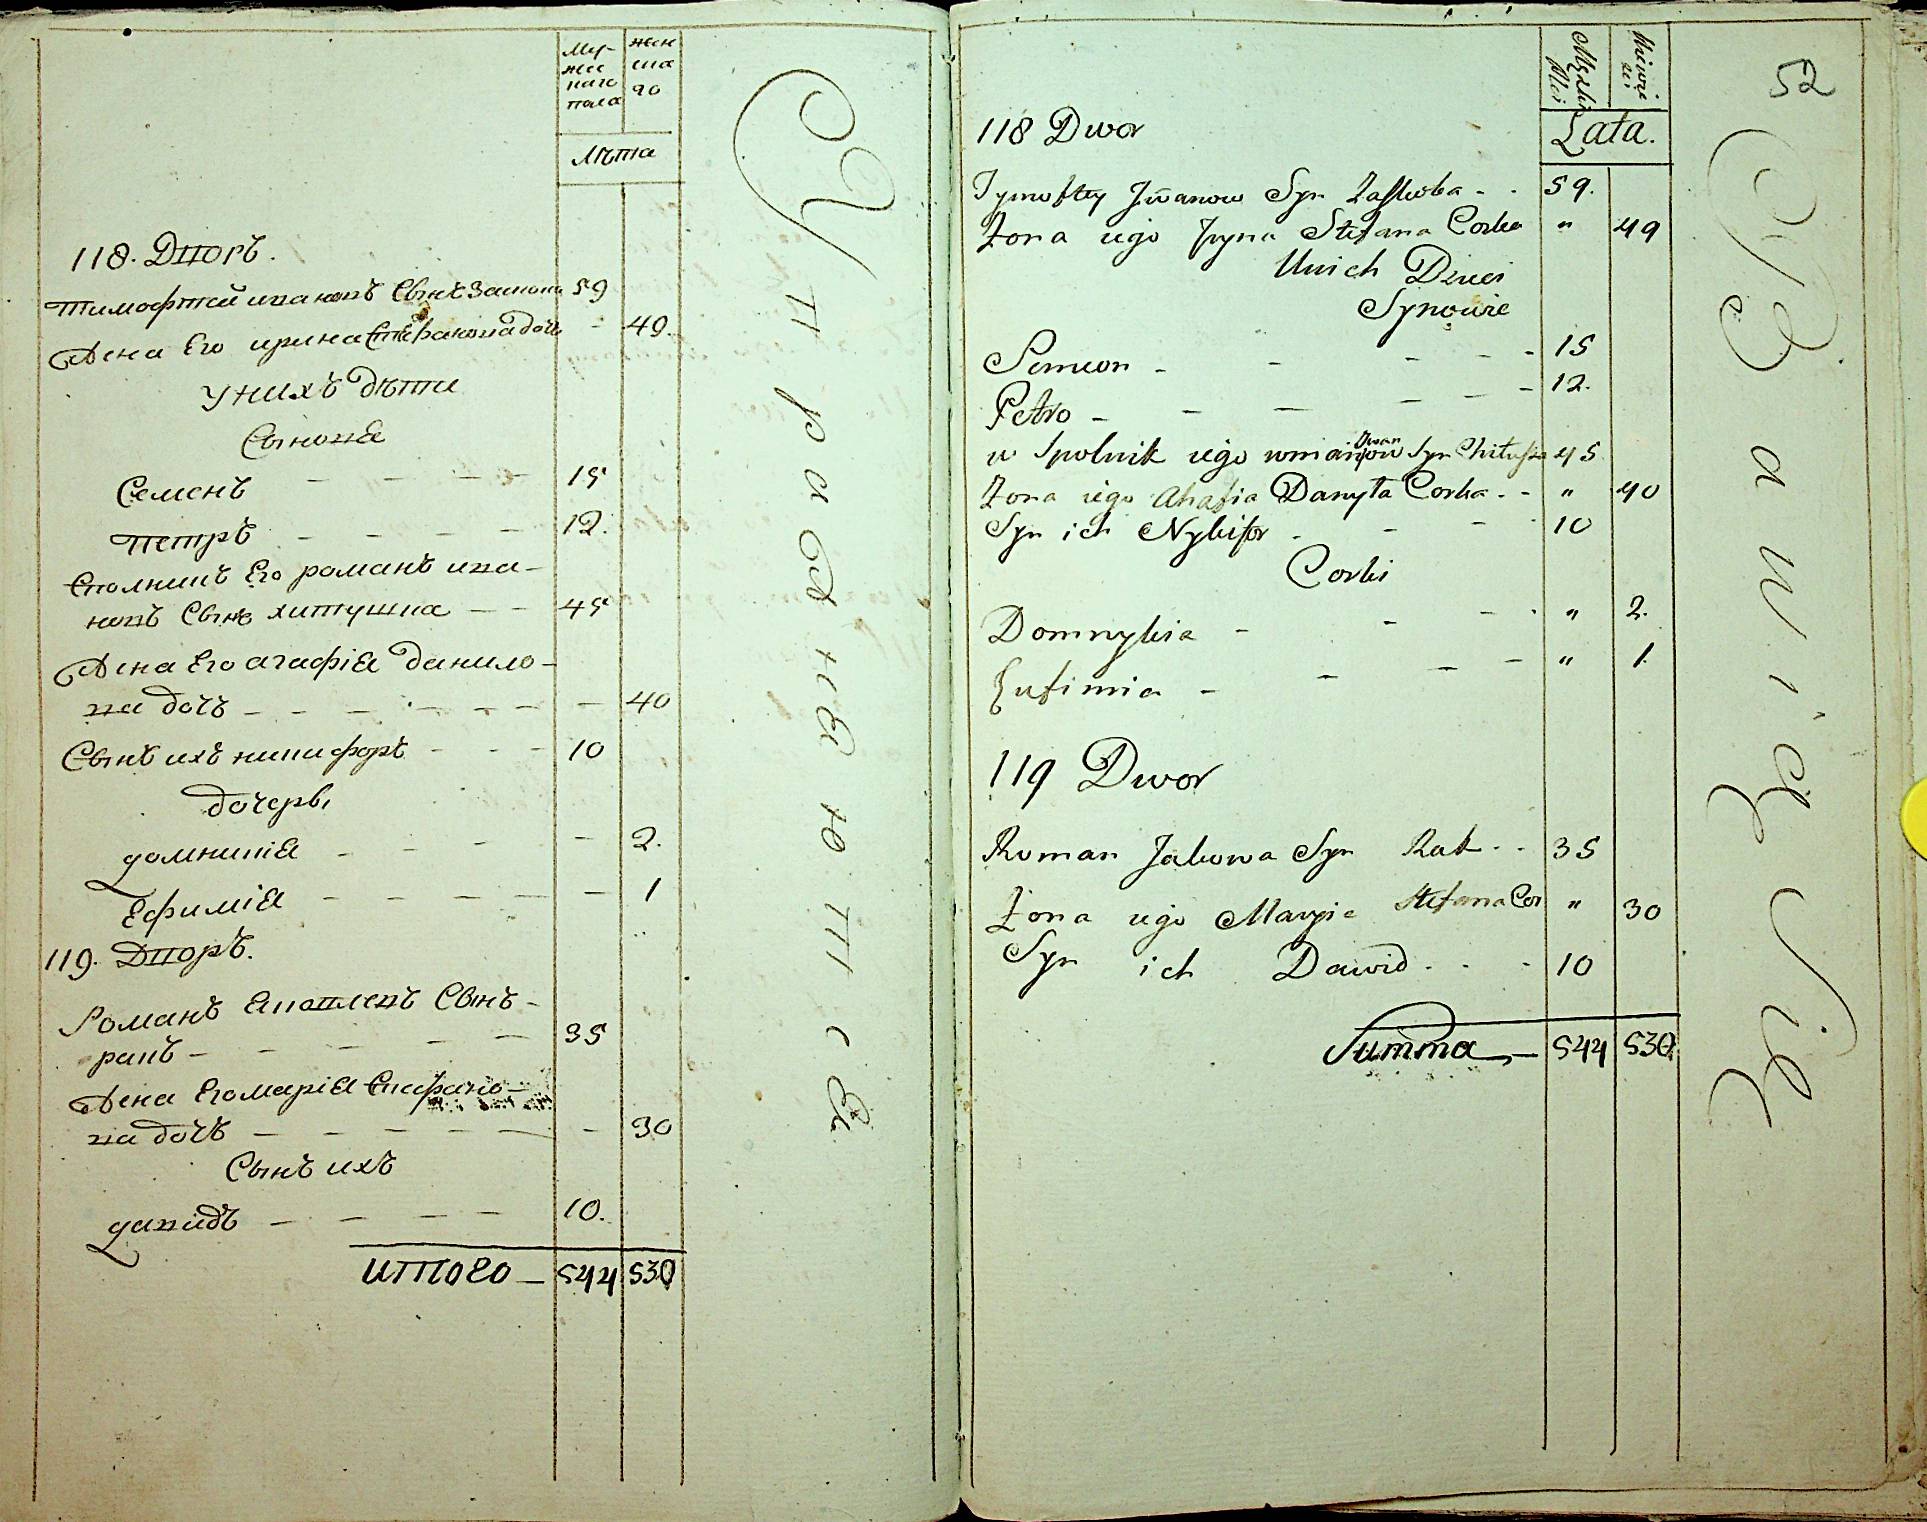 Мужеска пола
женска го
лѣта
118. Дворъ.
Тимофтей ивановъ Сынъ Заскока 59
Жена Его ирина Стефанова дочь - 49.
У нихъ дѣти
Сыновя
Семенъ - - - - 15
петръ - - - - 12.
Сполникъ Его романъ ива-
новъ Сынъ хитушка - - 45
Жена Его агафія данило-
ва дочъ - - - - - - - 40
Сынъ ихъ никифоръ - - - 10
дочеры
домникія - - - - 2.
Ефимія - - - - - 1
119. Дворъ.
Романъ Яковлевъ Сынъ-
ракъ - - - - - 35
Жена Его марія Стефано-
ва дочъ - - - - - - 30
Сынъ ихъ
давидъ - - - - 10.
итого - 544 530
У правняются
52
118 Dwor
Lata.
Tymoftey Jwanow Syn - - 59.
Żona iego Jryna Stefana Corka " 49
Unich Dzieci
Synowie
Semeon - - - - - 15
Petro - - - - - - 12.
w Spolnik iego Jwan Syn 45
Żona iego Ahafia Danyła Corka - - " 40
Syn ich Nykifor - - - - 10
Corki
Domnykia - - - - " 2.
Eufimia - - - - " 1.
119 Dwor
Roman Jakowa Syn Rak - - 35
Żona iego Maryia Stefana Cor " 30
Syn ich Dawid - - - 10
Summa - 544 530
Bawią Się